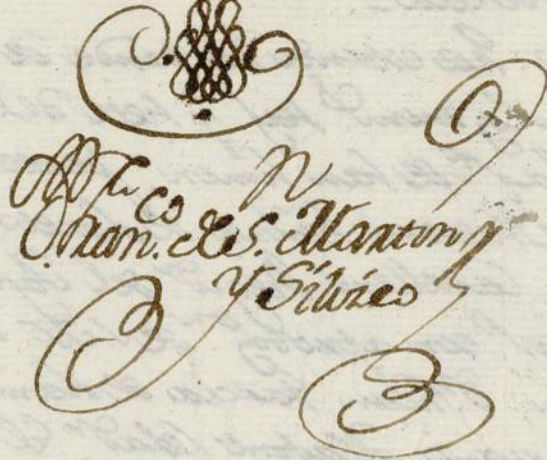 Fran.co de S. Martin
y Silvico